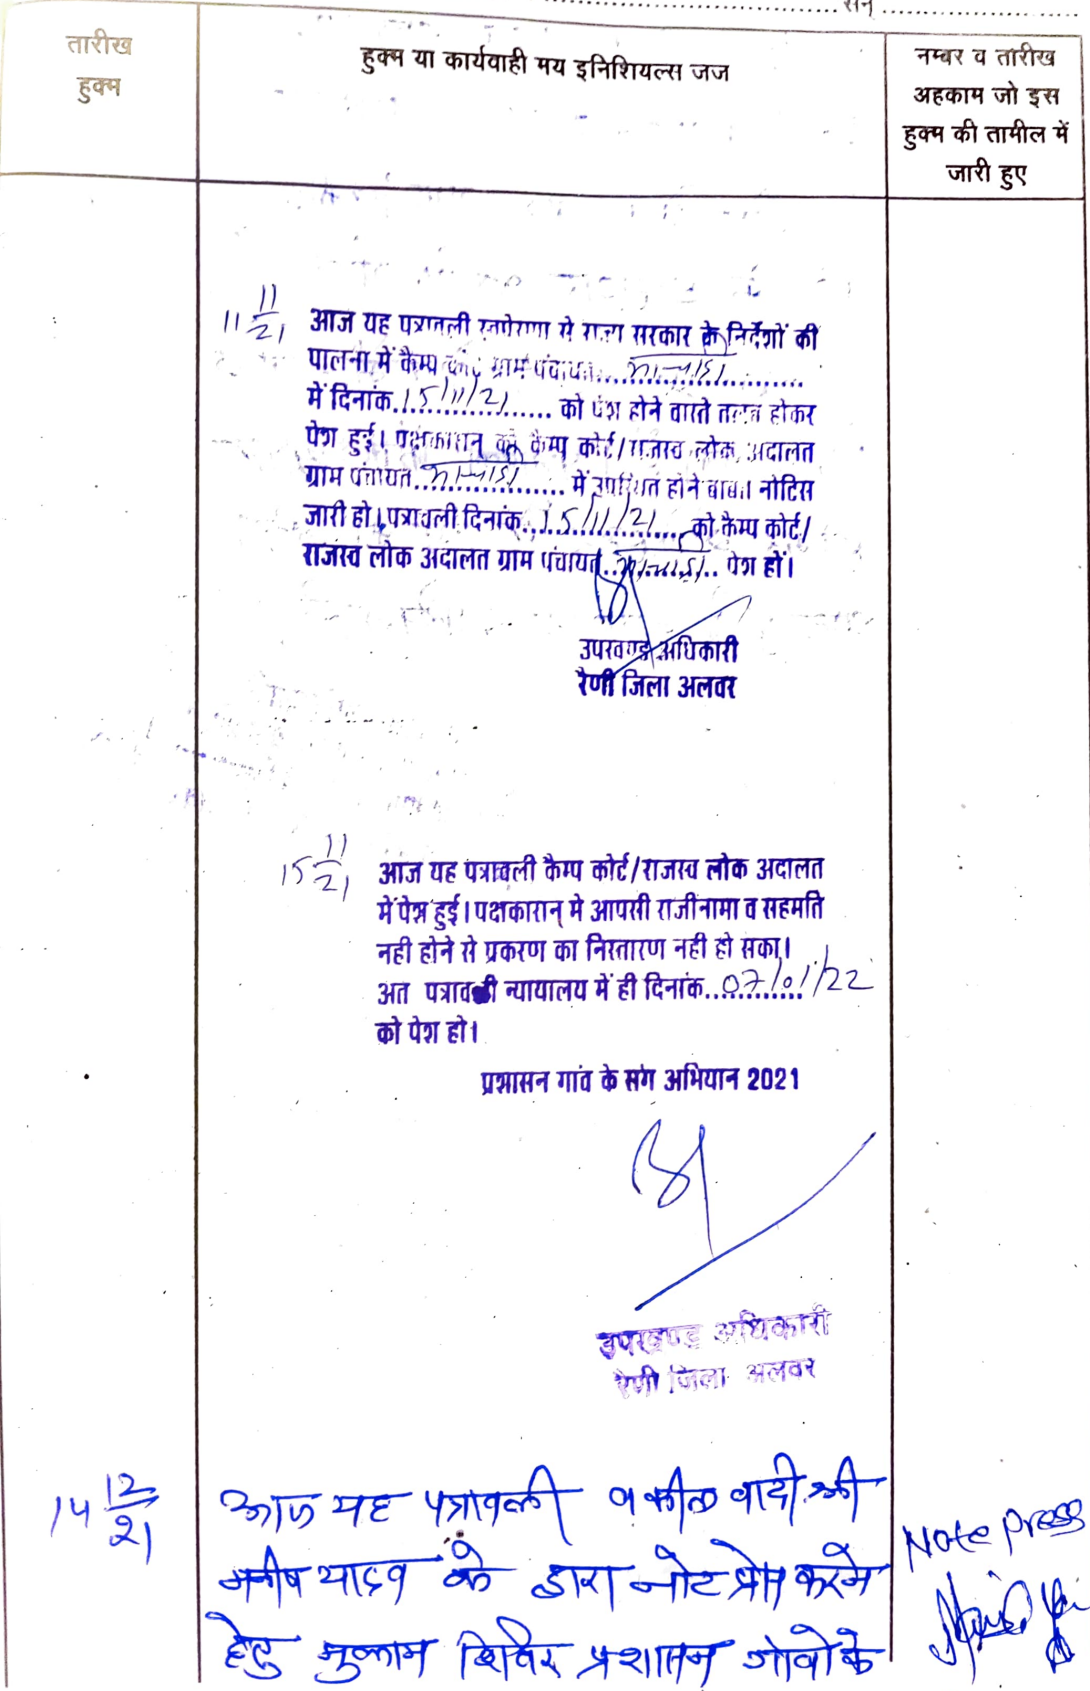 सन्
तारीख
हुक्म
हुक्म या कार्यवाही मय इनिशियल्स जज
नम्बर व तारीख
अहकाम जो इस
हुक्म की तामील में
जारी हुए
11 11/21
आज यह पत्रावली स्वप्रेरणा से राज्य सरकार के निर्देशों की
पालना में कैम्प कोर्ट ग्राम पंचायत
में दिनांक 15/11/21 को पेश होने वास्ते तलब होकर
पेश हुई। पक्षकारान् को कैम्प कोर्ट/राजस्व लोक अदालत
ग्राम पंचायत में उपस्थित होने बाबत नोटिस
जारी हो। पत्रावली दिनांक 15/11/21 को कैम्प कोर्ट/
राजस्व लोक अदालत ग्राम पंचायत पेश हों।
उपखण्ड अधिकारी
रैणी जिला अलवर
15 11/21
आज यह पत्रावली कैम्प कोर्ट/राजस्व लोक अदालत
में पेश हुई। पक्षकारान् मे आपसी राजीनामा व सहमति
नही होने से प्रकरण का निस्तारण नही हो सका।
अत पत्रावली न्यायालय में ही दिनांक 07/01/22
को पेश हो।
प्रशासन गांव के संग अभियान 2021
उपखण्ड अधिकारी
रैणी जिला अलवर
14 12/21
आज यह पत्रावली वकील वादी श्री
मनीष यादव के द्वारा नोट प्रेस करने
हेतु मुकाम शिविर प्रशासन गांवो के
Note Press